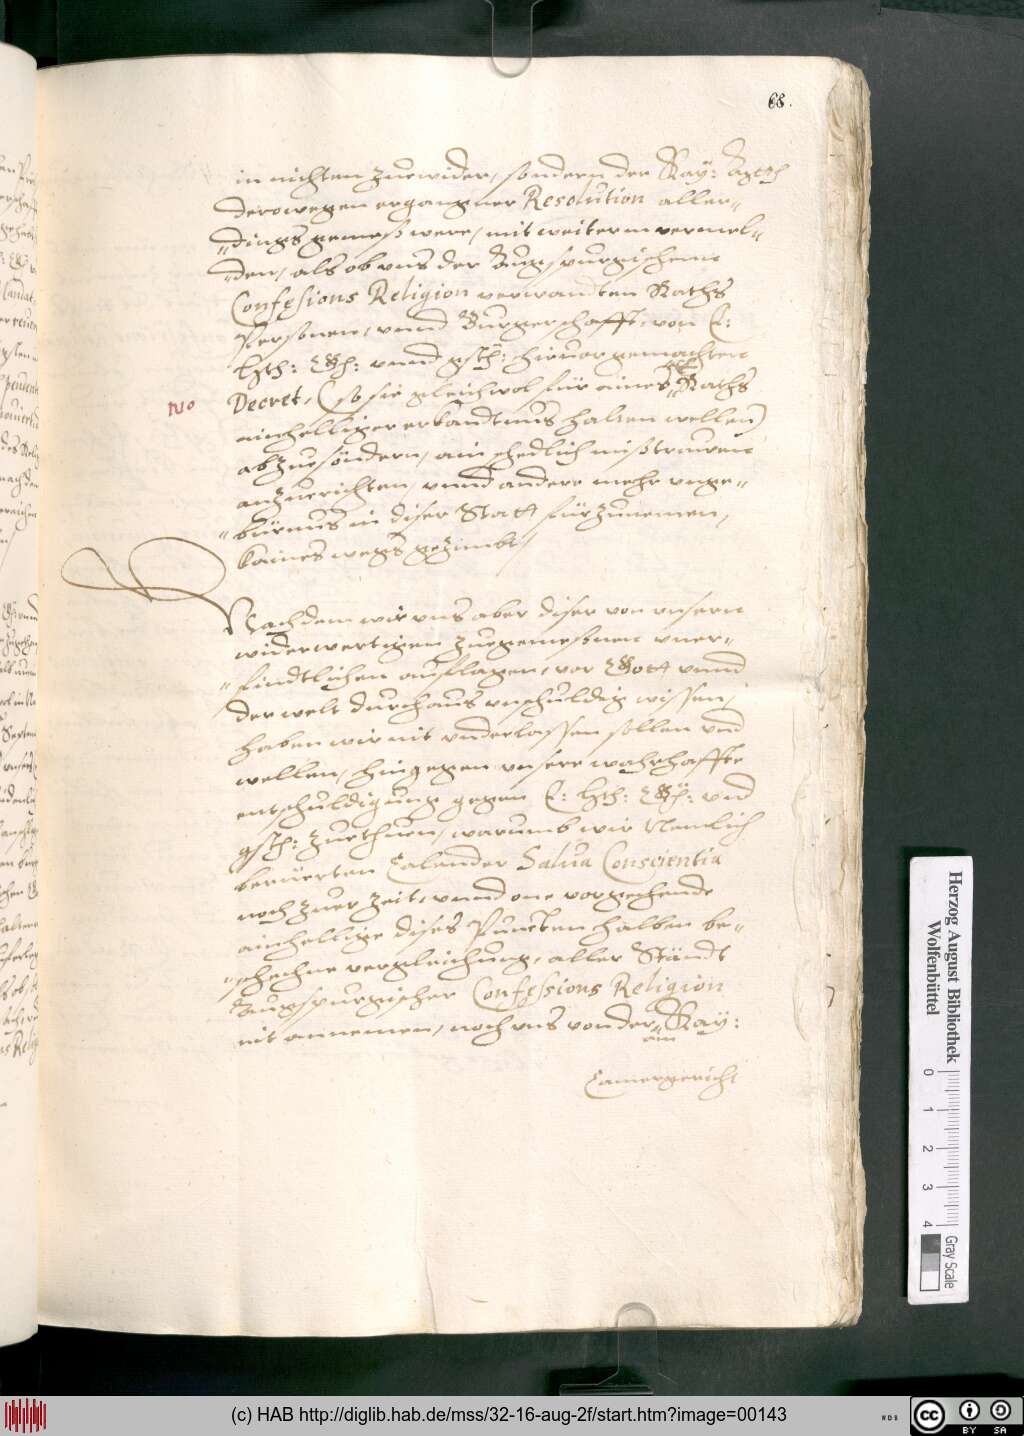 68.
in nichten zuewider, sondern der Kay:
derowegen ergangner Resolution aller„
„dings gemeß were, mit weiterm vermel„
„den, als ob vns der Augspurgischenn
Confesions Religion verwandten Raths
Personen, vnnd Burgerschafft, von E:
Hrh: vnnd gsth: hieuor gemachten
No
Decret, (so sie gleichwol für aines Raths
ainhelliger erkandtnus halten wellen)
abzuesöndern, ain schedlich mißtrauenn
anzuerichten, vnnd andere mehr vnge„
„bürnus in diser Statt fürzunemen,
kaines wegs gezimbt,
Nachdem wir vns aber diser von vnsern
widerwertigen zuegemeßnen vner„
„findtlichen auflagen, vor Gott vnnd
der welt durchaus vnschuldig wissen,
haben wir nit vnderlassen sollen vnd
wellen, hingegen vnsere wahrhaffte
entschuldigung gegen E: Hrh: vnd
gsth: zuethuen, warumb wir Nemlich
berüerten Calender Salua Conscientia
noch zuer zeit, vnnd one vorgehende
ainhellige dises Puncten halben be„
„schechne vergleichung, aller Ständt
Augspurgischer Confessions Religion
nit annemen, noch vns von der Kay:
am
Camergericht
Herzog August Bibliothek
Wolfenbüttel
0 1 2 3 4
Gray Scale
(c) HAB http://diglib.hab.de/mss/32-16-aug-2f/start.htm?image=00143
cc BY SA